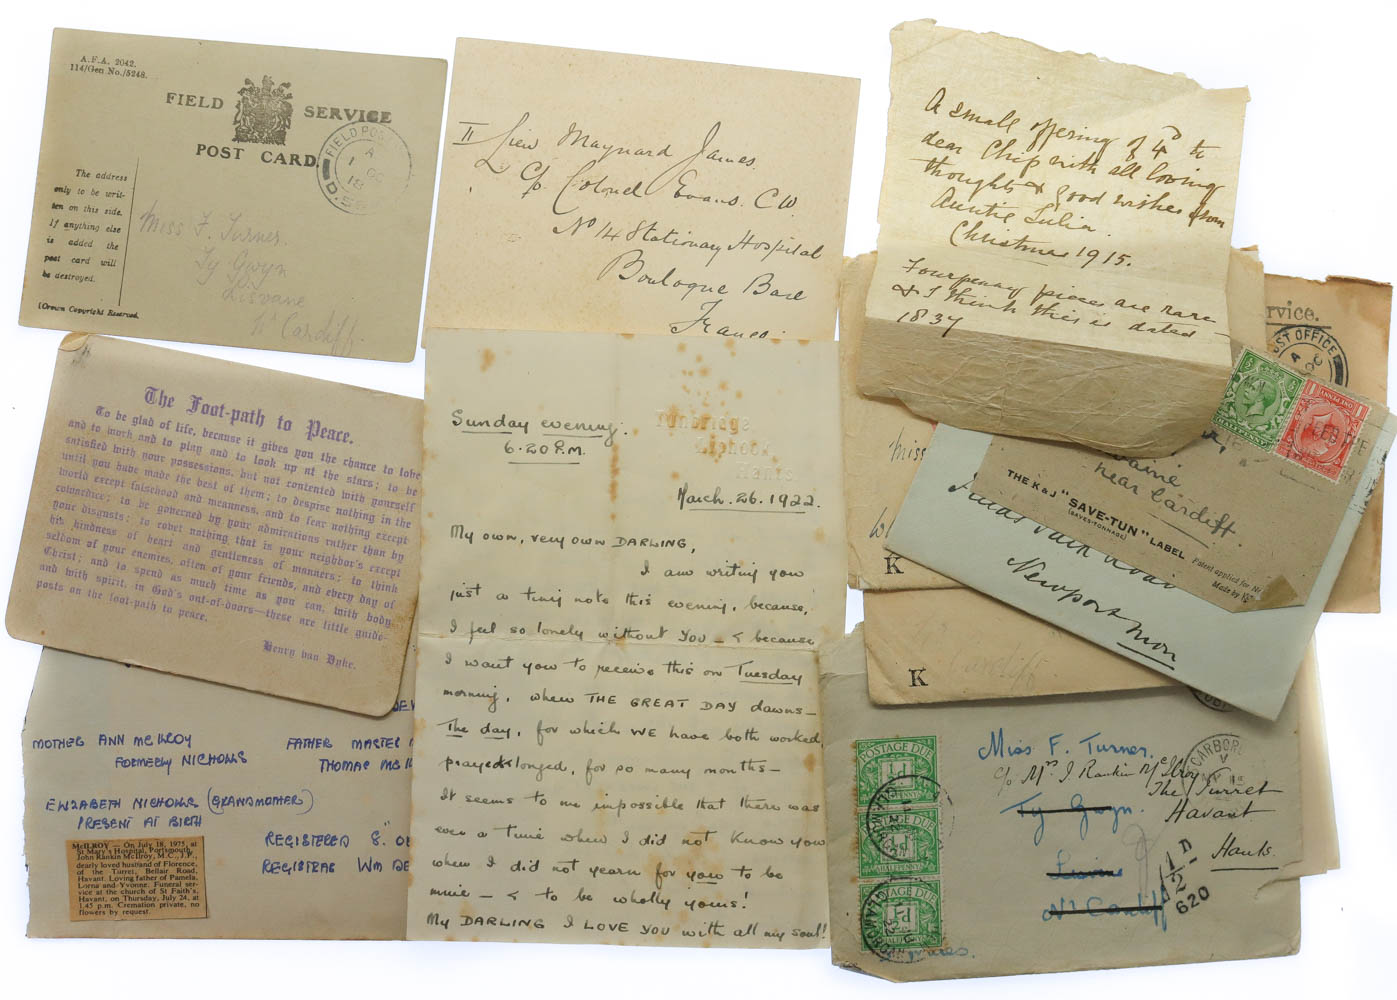 A.F.A. 2042.
114/Gen.No./5248.
FIELD SERVICE
POST CARD
FIELD POST
A
1 OC
18
The address
only to be writ-
ten on this side.
If anything else
is added the
post card will
be destroyed.
[Crown Copyright Reserved.
Miss F. Turner.
Ty Gwyn
Lisvane
Nr Cardiff.
II Lieu Maynard James
c/o Colonel Evans. C.W.
No 14 Stationary Hospital
Boulogne Base
France
A small offering of 4D to
dear Chip with all loving
thoughts & good wishes from
Auntie Lilia.
Christmas 1915.
Fourpenny pieces are rare
& I think this is dated
1837
rvice.
OST OFFICE
A
OC
The Foot-path to Peace.
To be glad of life, because it gives you the chance to love
and to work and to play and to look up at the stars; to be
satisfied with your possessions, but not contented with yourself
until you have made the best of them; to despise nothing in the
world except falsehood and meanness, and to fear nothing except
cowardice; to be governed by your admirations rather than by
your disgusts; to covet nothing that is your neighbor's except
his kindness of heart and gentleness of manners; to think
seldom of your enemies, often of your friends, and every day of
Christ; and to spend as much time as you can, with body
and with spirit, in God's out-of-doors—these are little guide-
posts on the foot-path to peace.
Henry van Dyke.
Tunbridge
Liphook
Hants.
Sunday evening.
6.20 P.M.
March. 26. 1922.
My own, very own DARLING,
I am writing you
just a tiny note this evening, because,
I feel so lonely without YOU — & because
I want you to receive this on Tuesday
morning, when THE GREAT DAY dawns —
The day, for which WE have both worked,
prayed & longed, for so many months —
It seems to me impossible that there was
ever a time when I did not know you
when I did not yearn for you to be
mine — & to be wholly yours!
My DARLING I LOVE YOU with all my soul!
HALFPENNY
ONE PENNY
near Cardiff.
THE K & J "SAVE-TUN" LABEL
(SAVES-TONNAGE)
Patent applied for No
Made by
Newport
Mon
Miss
K
K
Cardiff
MOTHER ANN McILROY
FORMERLY NICHOLLS
FATHER MASTER
THOMAS McIL
ELIZABETH NICHOLLS (GRANDMOTHER)
PRESENT AT BIRTH
REGISTERED 8" O
REGISTRAR WM DE
McILROY — On July 18, 1975, at
St Mary's Hospital, Portsmouth,
John Rankin McIlroy, M.C., J.P.,
dearly loved husband of Florence,
of the Turret, Bellair Road,
Havant. Loving father of Pamela,
Lorna and Yvonne. Funeral ser-
vice at the church of St Faith's,
Havant, on Thursday, July 24, at
1.45 p.m. Cremation private, no
flowers by request.
POSTAGE DUE
AGE DUE
AGE DUE
Miss F. Turner.
c/o Mrs J Rankin McIlroy
The Turret
Havant
Hants.
Ty Gwyn.
Lisvane
Nr Cardiff
1D
2
620